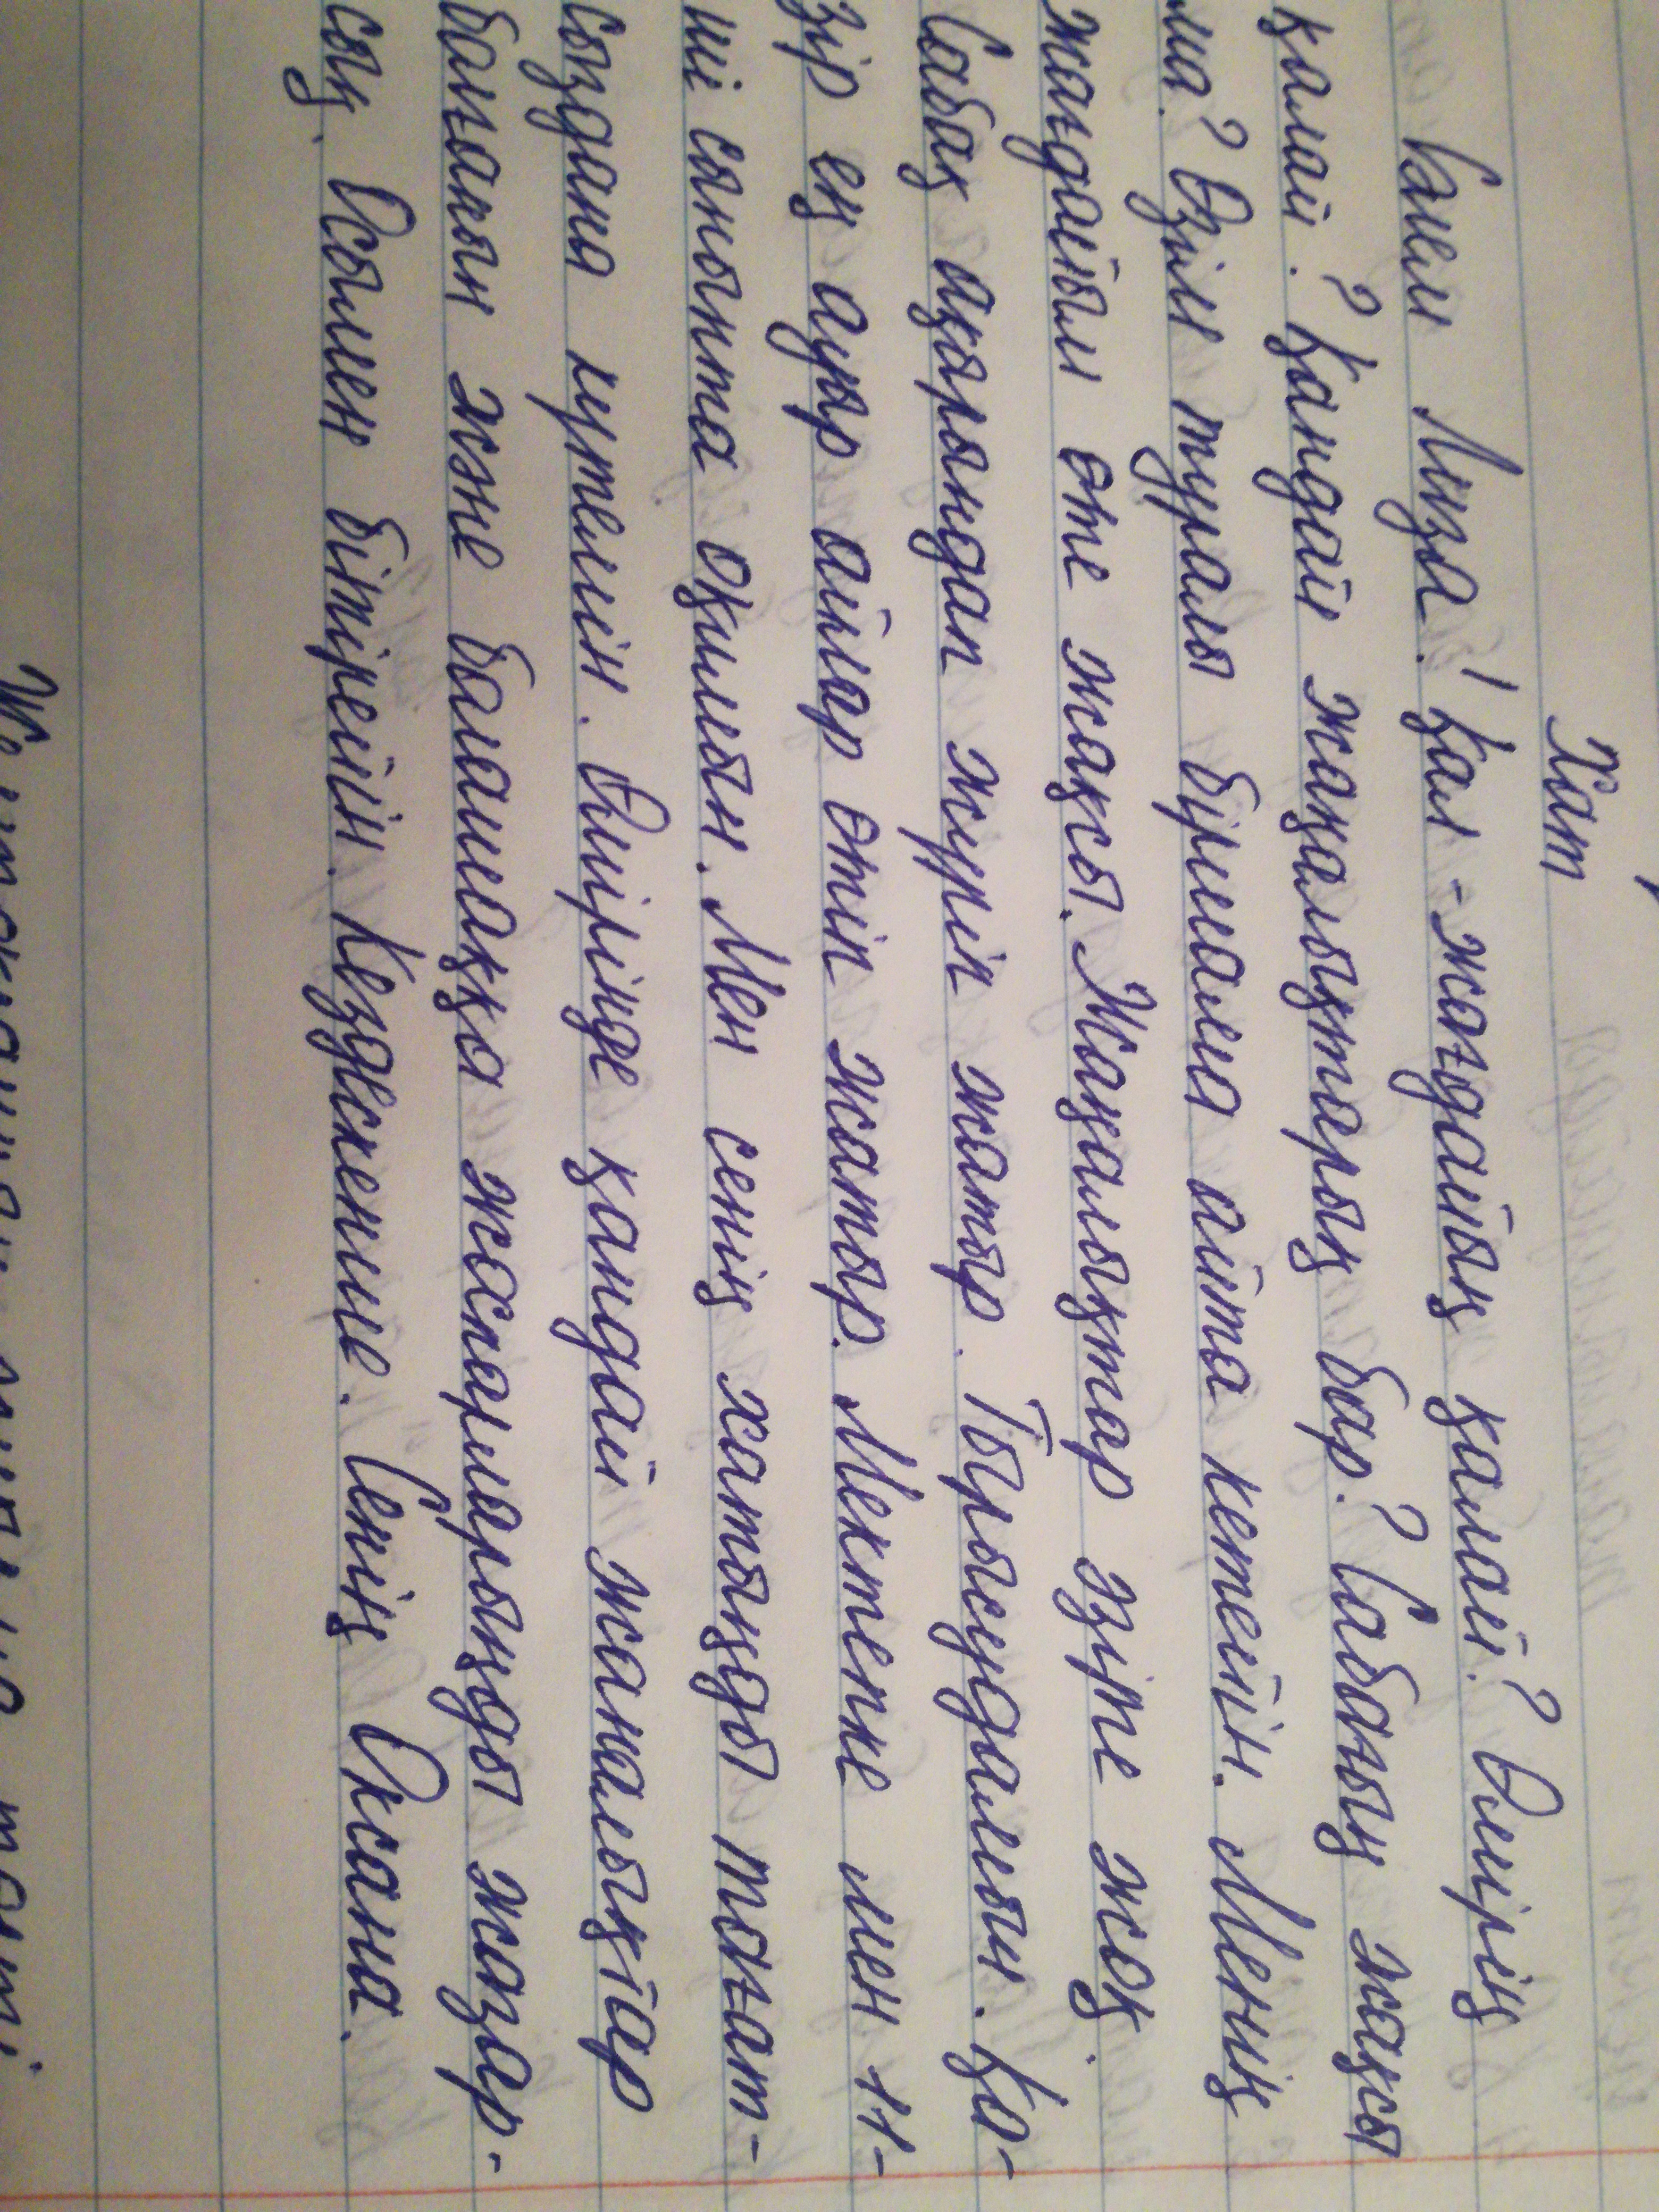 Хат
Сәлем Лиза! Қал-жағдайың қалай? Өмірің
қалай? Қандай жаңалықтарың бар? Сабағың жақсы
ма? Өзім туралы бірмала айта кетейін. Менің
жағдайым өте жақсы. Жаңалықтар әзірге жоқ.
Сабақ ақырындап жүріп жатыр. Тырысудамын. Қа-
зір ең ауыр айлар өтіп жатыр. Мектепке мен 11-
ші сыныпта оқимын. Мен сенің хатыңды тағат-
сыздана күтемін. Өмірінде қандай жаңалықтар
бағасын және болашаққа жоспарларыңды жазар-
сың. Осымен бітірейін. Кездескенше. Сенің Оксана.